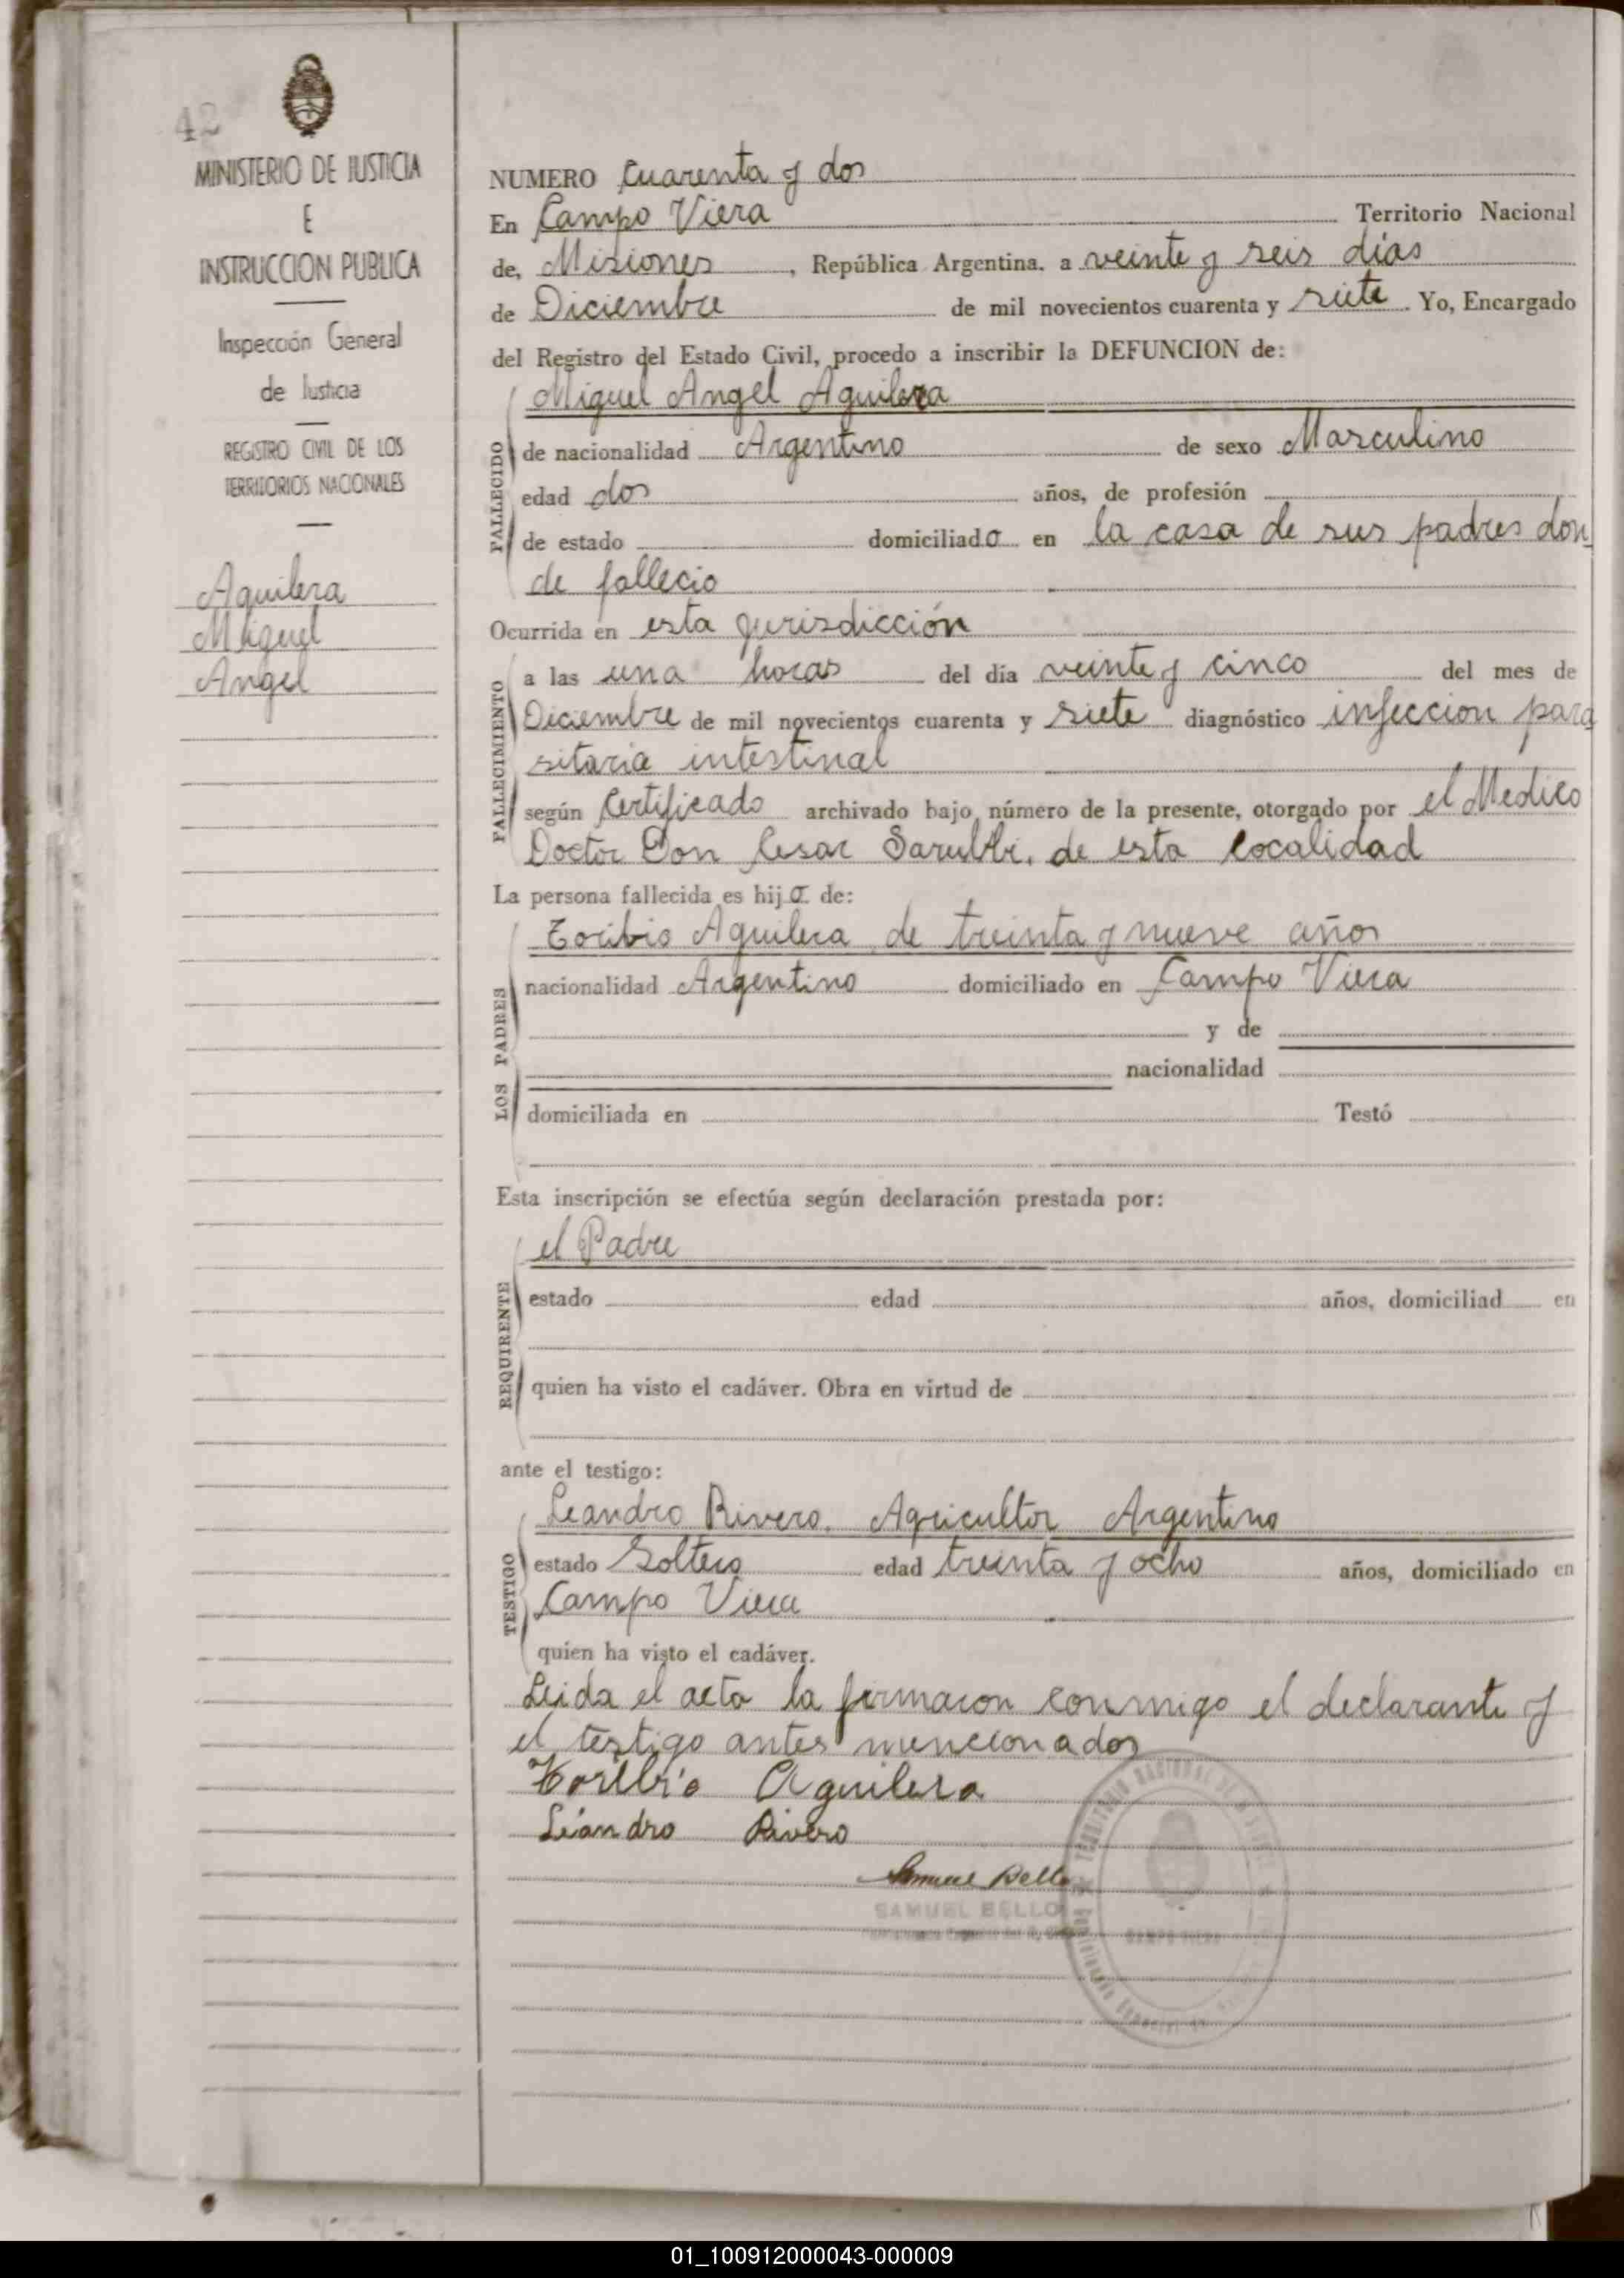 42
MINISTERIO DE JUSTICIA
E
INSTRUCCION PUBLICA
Inspección General
de Justicia
REGISTRO CIVIL DE LOS
TERRITORIOS NACIONALES
Aguilera
Miguel
Angel
NUMERO Cuarenta y dos
En Campo Viera Territorio Nacional
de, Misiones, República Argentina. a veinte y seis días
de Diciembre de mil novecientos cuarenta y siete. Yo, Encargado
del Registro del Estado Civil, procedo a inscribir la DEFUNCION de:
Miguel Angel Aguilera
FALLECIDO
de nacionalidad Argentino de sexo Masculino
edad dos años, de profesión
de estado domiciliado en la casa de sus padres don
de fallecio
Ocurrida en esta jurisdicción
FALLECIMIENTO
a las una horas del día veinte y cinco del mes de
Diciembre de mil novecientos cuarenta y siete diagnóstico infeccion para
sitaria intestinal
según Certificado archivado bajo número de la presente, otorgado por el Medico
Doctor Don Cesar de esta localidad
La persona fallecida es hijo de:
Toribio Aguilera de treinta y nueve años
LOS PADRES
nacionalidad Argentino domiciliado en Campo Viera
y de
nacionalidad
domiciliada en Testó
Esta inscripción se efectúa según declaración prestada por:
el Padre
REQUIRENTE
estado edad años, domiciliad en
quien ha visto el cadáver. Obra en virtud de
ante el testigo:
Leandro Rivero. Agricultor Argentino
TESTIGO
estado Soltero edad treinta y ocho años, domiciliado en
Campo Viera
quien ha visto el cadáver.
Leida el acta la firmaron conmigo el declarante y
el testigo antes mencionados
Toribio Aguilera
Leandro Rivero
Samuel Bello
SAMUEL BELLO
CAMPO VIERA
01_100912000043-000009